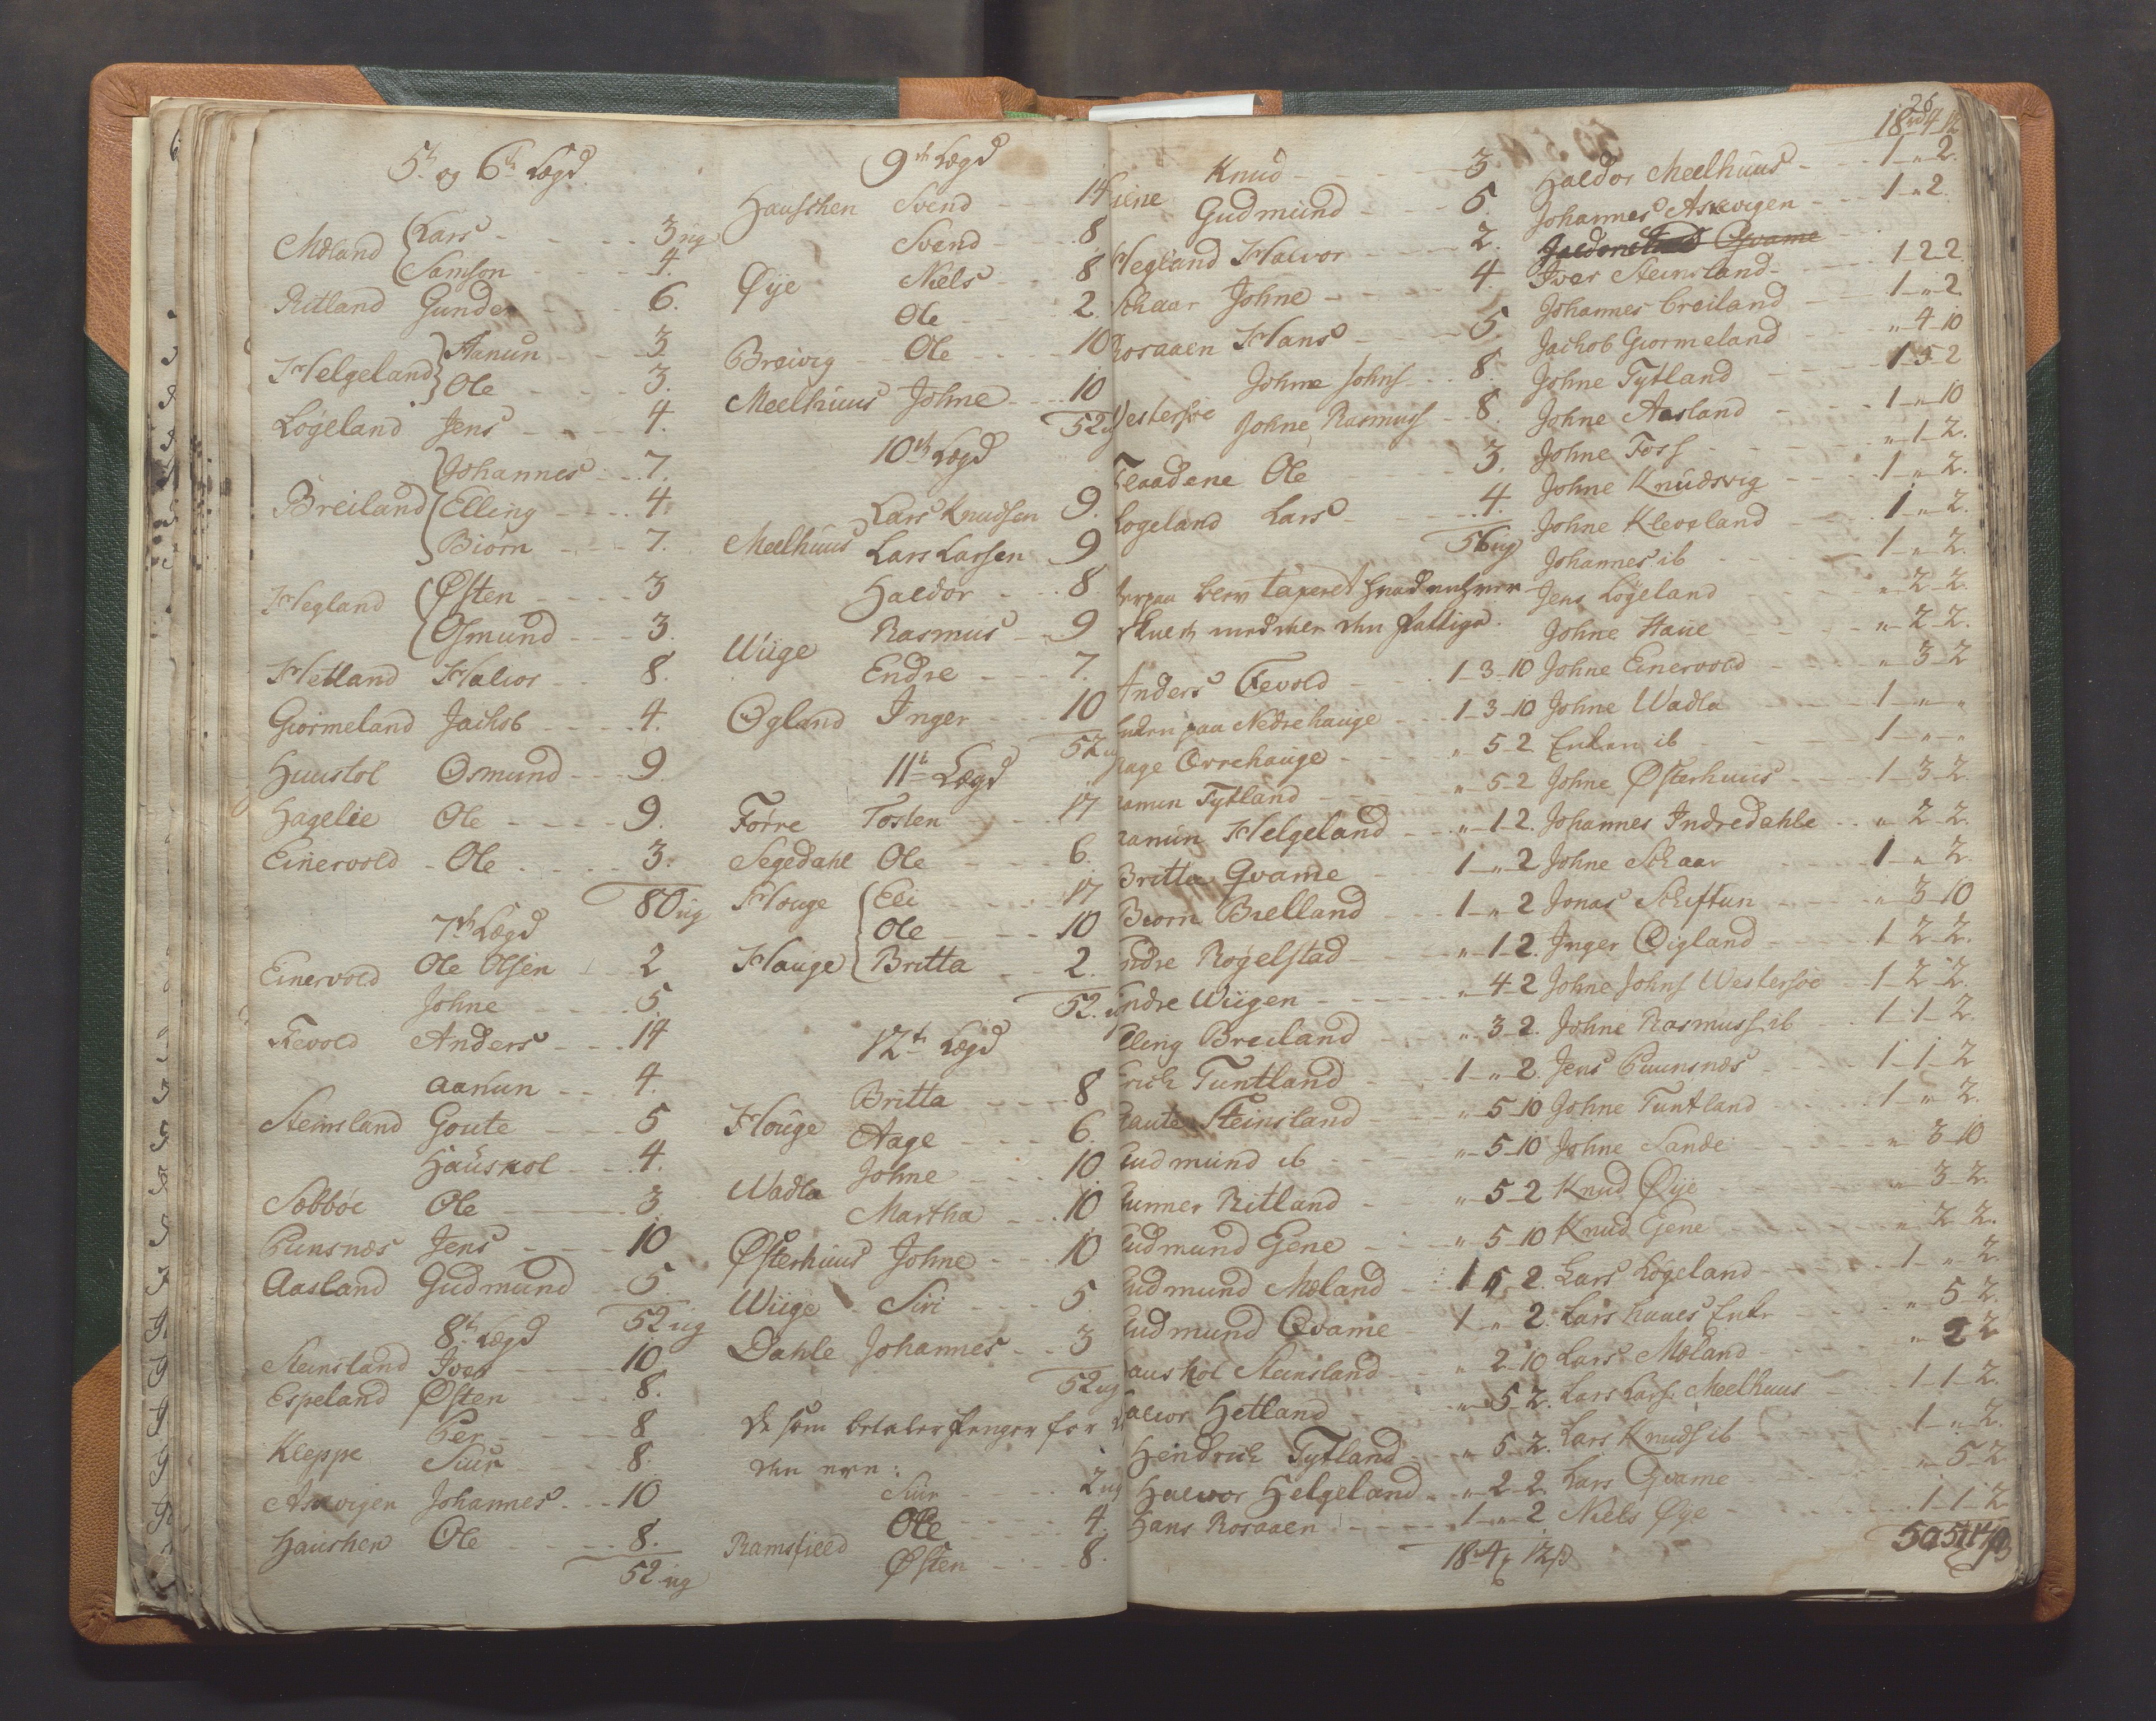 5te og 6te Lægd
Mæland Lars - - - 3 ug
Samson - - - 4.
Ritland Gunder - - 6.
Helgeland Aanun - - 3
Ole - - - 3.
Løgeland Jens - - - 4.
Johannes - - 7.
Breiland Elling - - - 4.
Biørn - - - 7.
Hegland Østen - - - 3
Osmund - - - 3.
Hetland Halvor - - 8.
Giormeland Jachob - - - 4.
Huustol Osmund - - 9
Hagelie Ole - - - 9.
Einervold - Ole - - - 3.
80 ug
7de Lægd
Einervold Ole Olsen - 2
Johne - - - 5.
Fevold Anders - - - 14
Aanun - - - 4.
Steinsland Goute - - - 5
Hauskol - - 4.
Søbbøe Ole - - - 3
Punsnæs Jens - - - 10
Aasland Gudmund - 5.
52 ug
8de Lægd
Steinsland Iver - - - 10
Espeland Østen - - - 8.
Kleppe Per - - - 8
Siur - - - 8.
Asevigen Johannes - - 10
Hauschen Ole - - - 8.
52 ug
9de Lægd
Hauschen Svend - - 14
Svend - - - 8
Øÿe Niels - - 8
Ole - - - 2.
Breivig Ole - - - 10
Meelhuus Johne - - - 10
52 u
10de Lægd
Lars Knudsen 9.
Meelhuus Lars Larsen 9
Haldor - - 8.
Wiige Rasmus - - 9
Endre - - - 7.
Øgland Inger - - - 10
52 u
11te Lægd
Førre Tosten - - - 17
Segedahl Ole - - - 6.
Houge Eli - - - 17
Ole - - - 10
Hauge Britta - - - 2.
52. u
12te Lægd
Britta - - - 8
Houge Aage - - - 6.
Wadla Johne - - - 10.
Martha - - 10
Østerhuus Johne - - - 10
Wiige Siri - - - 5.
Dahle Johannes - - 3
52 ug
De som betaler penger for
den
Siur - - - 2 ug
Ole - - - 4.
Ramsfield Østen - - - 8.
Knud - - - 3
iene Gudmund - - - 5.
Hegland Halvor - - - 2.
Schaar Johne - - - 4
Rosaaen Hans - - - 5.
Johne Johns - - 8.
Westersøe Johne Rasmus - 8.
Flaadene Ole 3.
Løgeland Lars - - - 4.
56 ug
Anders Fevold - - - 1-3-10
Enken paa Nedrehauge - - 1-3-10
Aage Øvrehauge - - - „ 5-2
aanun Tytland - - - „ 5-2
aanun Helgeland - - - „ 1-2.
Britta Qvame - - - 1-„-2
Biorn Brelland - - - 1-„-2
Endre Røgelstad - - - „ 1-2.
Endre Wiigen - - - „ 4-2
Elling Breiland - - - „ 3-2.
Erich Tuntland - - - 1-„-2.
Gaute Steinsland - - - „ 5-10
Gudmund ib - - - „ 5-10
Gunner Ritland - - „ 5-2
Gudmund Giene - - „ 5-10
Gudmund Mæland - - 1 5-2.
Gudmund Qvame - 1-„-2.
Hauskol Steinsland - - „ 2-10
Halvor Hetland - - „ 5-2.
Hendrich Tytland - - „ 5-2.
Halvor Helgeland - - „ 2-2.
Hans Rosaaen - - - 1-„-2
18 rd 4 12 s
26
18 rd 4 12
Haldor Meelhuus - - - 1-„-2.
Johannes Asevigen - - - 1-„-2.
Qvame
Iver Steinsland - - - 1-2-2.
Johannes Breiland - - 1-„-2
Jachob Giormeland - - „ 4-10
Johne Tytland - - - 1-5-2
Johne Aasland - - - 1-„-10
Johne Foss - - - „ 1-2.
Johne Knudsvig - - - 1-„-2.
Johne Kleveland - - - 1-„-2.
Johannes ib - - - 1-„-2.
Jens Løgeland - - - „ 2-2.
Johne Haue - - - „ 2-2.
Johne Einervold - - - „ 3-2
Johne Wadla - - - 1-„-„
Enken ib - - - 1-„-„
Johne Østerhuus - - - 1-3-2.
Johannes Indredahle - - „ 2-2.
Johne Schaar - - - 1-„-2.
Jonas Schiftun - - - „ 3-10
Inger Øigland - - - 1-2-2.
Johne Johns Westersøe - 1-2-2.
Johne Rasmuss ib - - 1-1-2.
Jens Puunsnæs - - - 1-1-2
Johne Tuntland - - - 1-„-2.
Johne Sande - - - „ 3-10
Knud Øÿe - - - „ 3-2.
Knud Giene - - - „ 2-2.
Lars Løgeland - - - 1-„-2
Lars haues Enke - - - „ 5-2.
Lars Mæland - - - „ 2-2
Lars Larss. Meelhuus - - 1-1-2.
Lars Knuds ib - - - 1-„-2.
Lars Qvame - - - „ 5-2
Niels Øÿe - - - 1-1-2